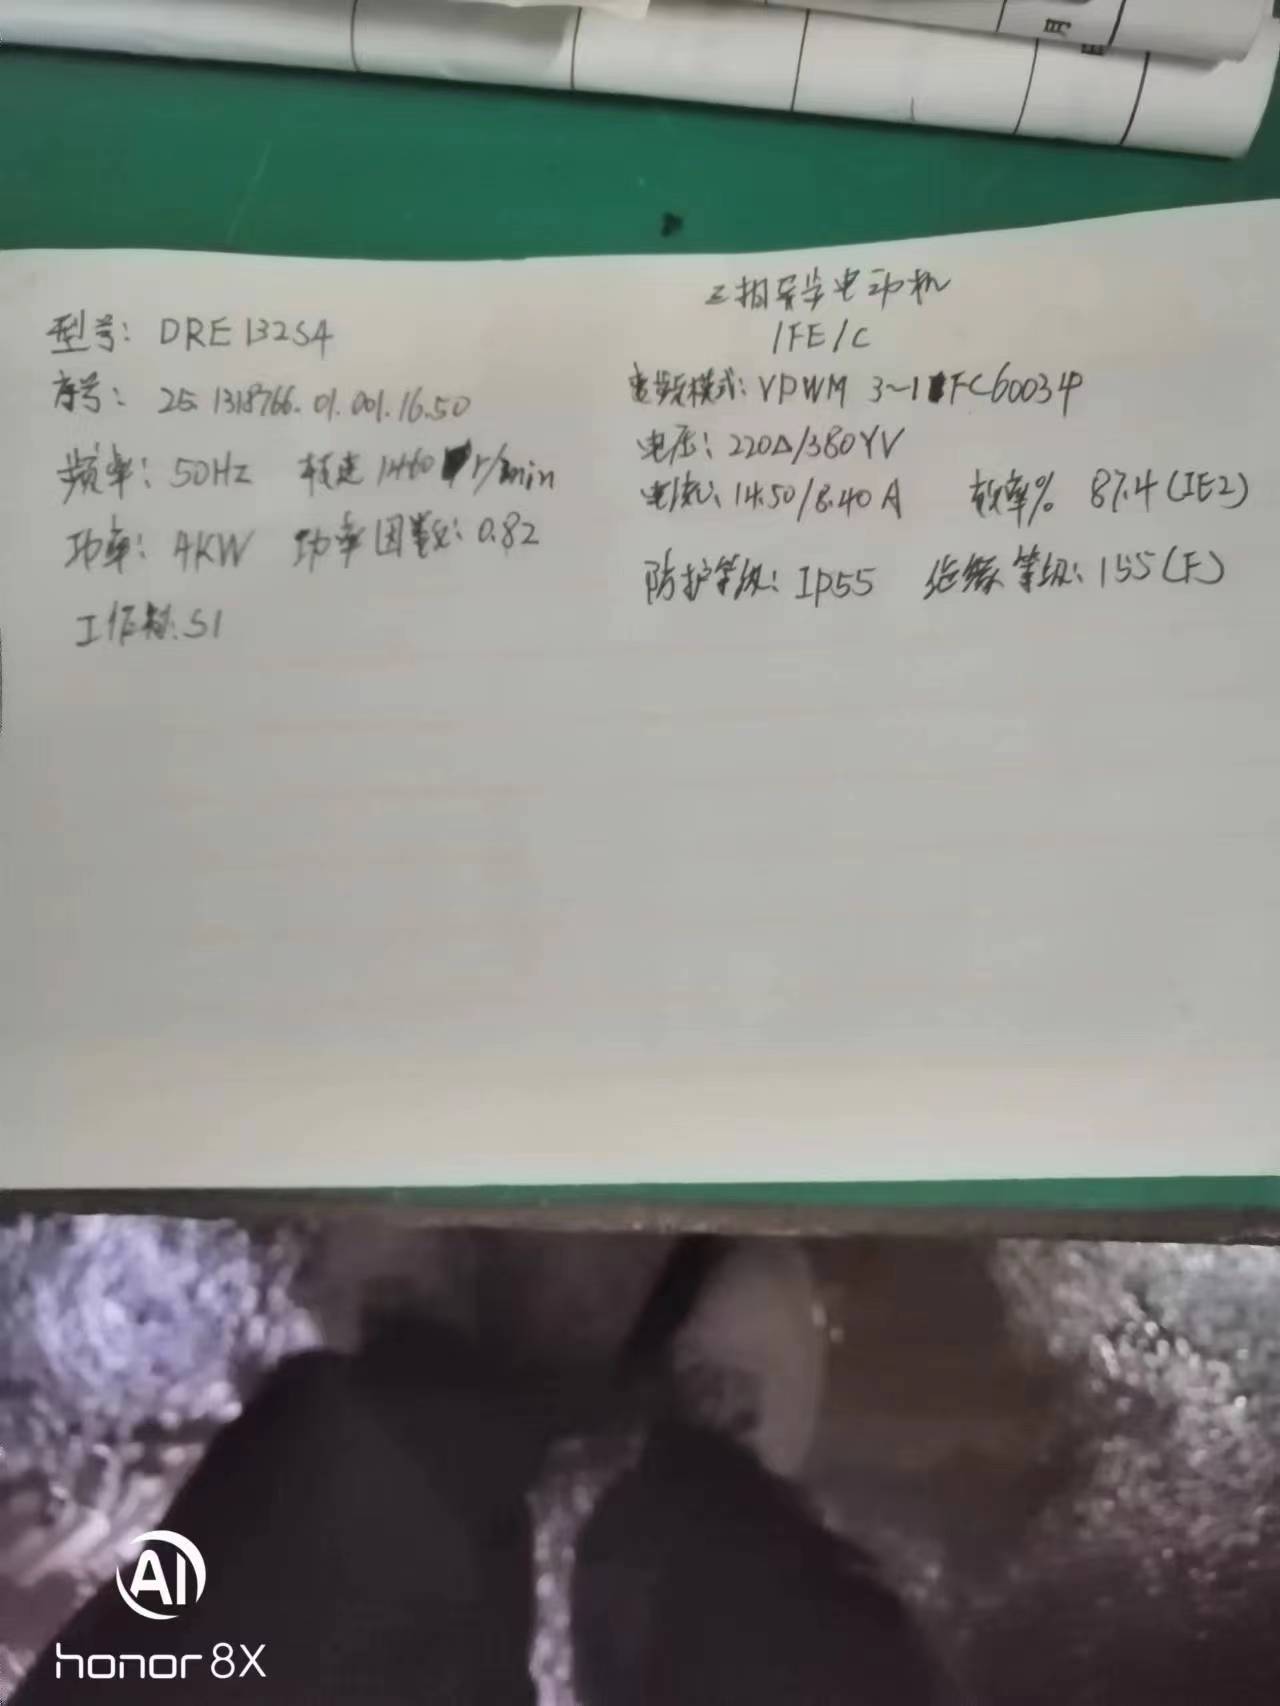 月
三相异步电动机
/FE/C
型号: DRE132S4
序号: 25.1318766.01.001.16.50
变频模式: VPWM 3~1 FC60034
频率: 50Hz 转速 1460 r/min
电压: 220Δ/380YV
电流: 14.50/8.40A 效率% 87.4(IE2)
功率: 4KW 功率因数: 0.82
防护等级: IP55 绝缘等级: 155(F)
工作制: S1
AI
honor 8X